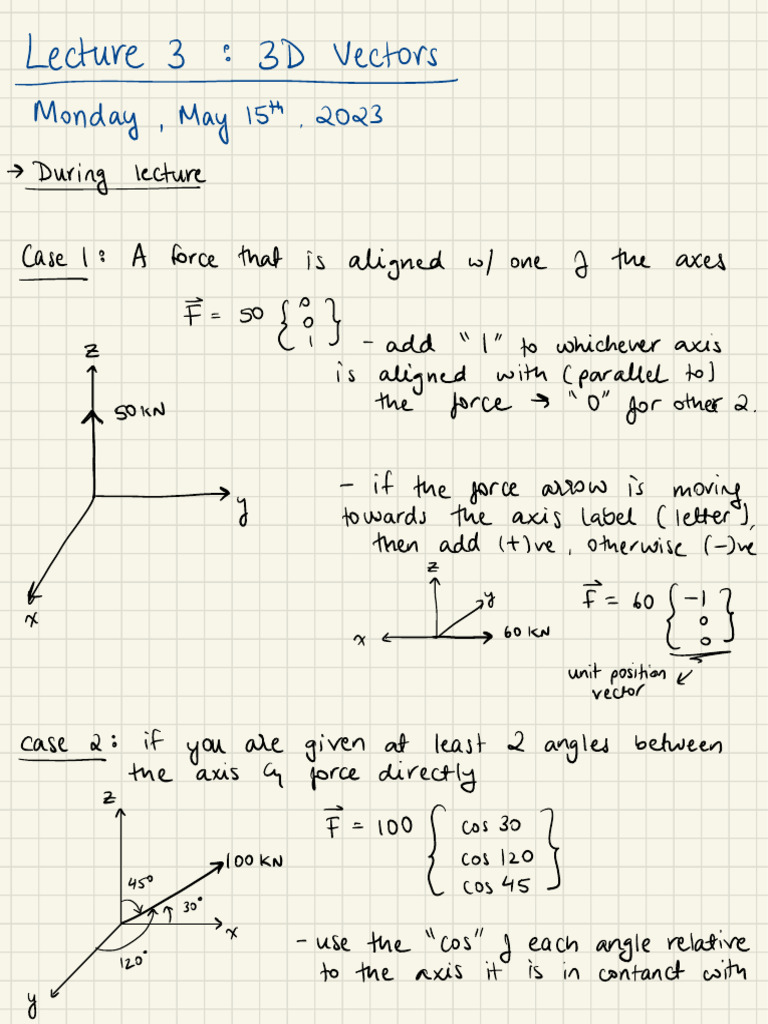 Lecture 3 : 3D Vectors
Monday, May 15th, 2023
→ During lecture
Case 1: A force that is aligned w/ one of the axes
F⃗ = 50 { 0 0 1 }
- add "1" to whichever axis
is aligned with (parallel to)
the force → "0" for other 2.
z
50 KN
y
x
- if the force arrow is moving
towards the axis label (letter),
then add (+)ve, otherwise (-)ve
z
y
x
60 KN
F⃗ = 60 { -1 0 0 }
unit position
vector
Case 2: if you are given at least 2 angles between
the axis & force directly
z
100 KN
45°
30°
x
120°
y
F⃗ = 100 { cos 30
cos 120
cos 45 }
- use the "cos" of each angle relative
to the axis it is in contanct with